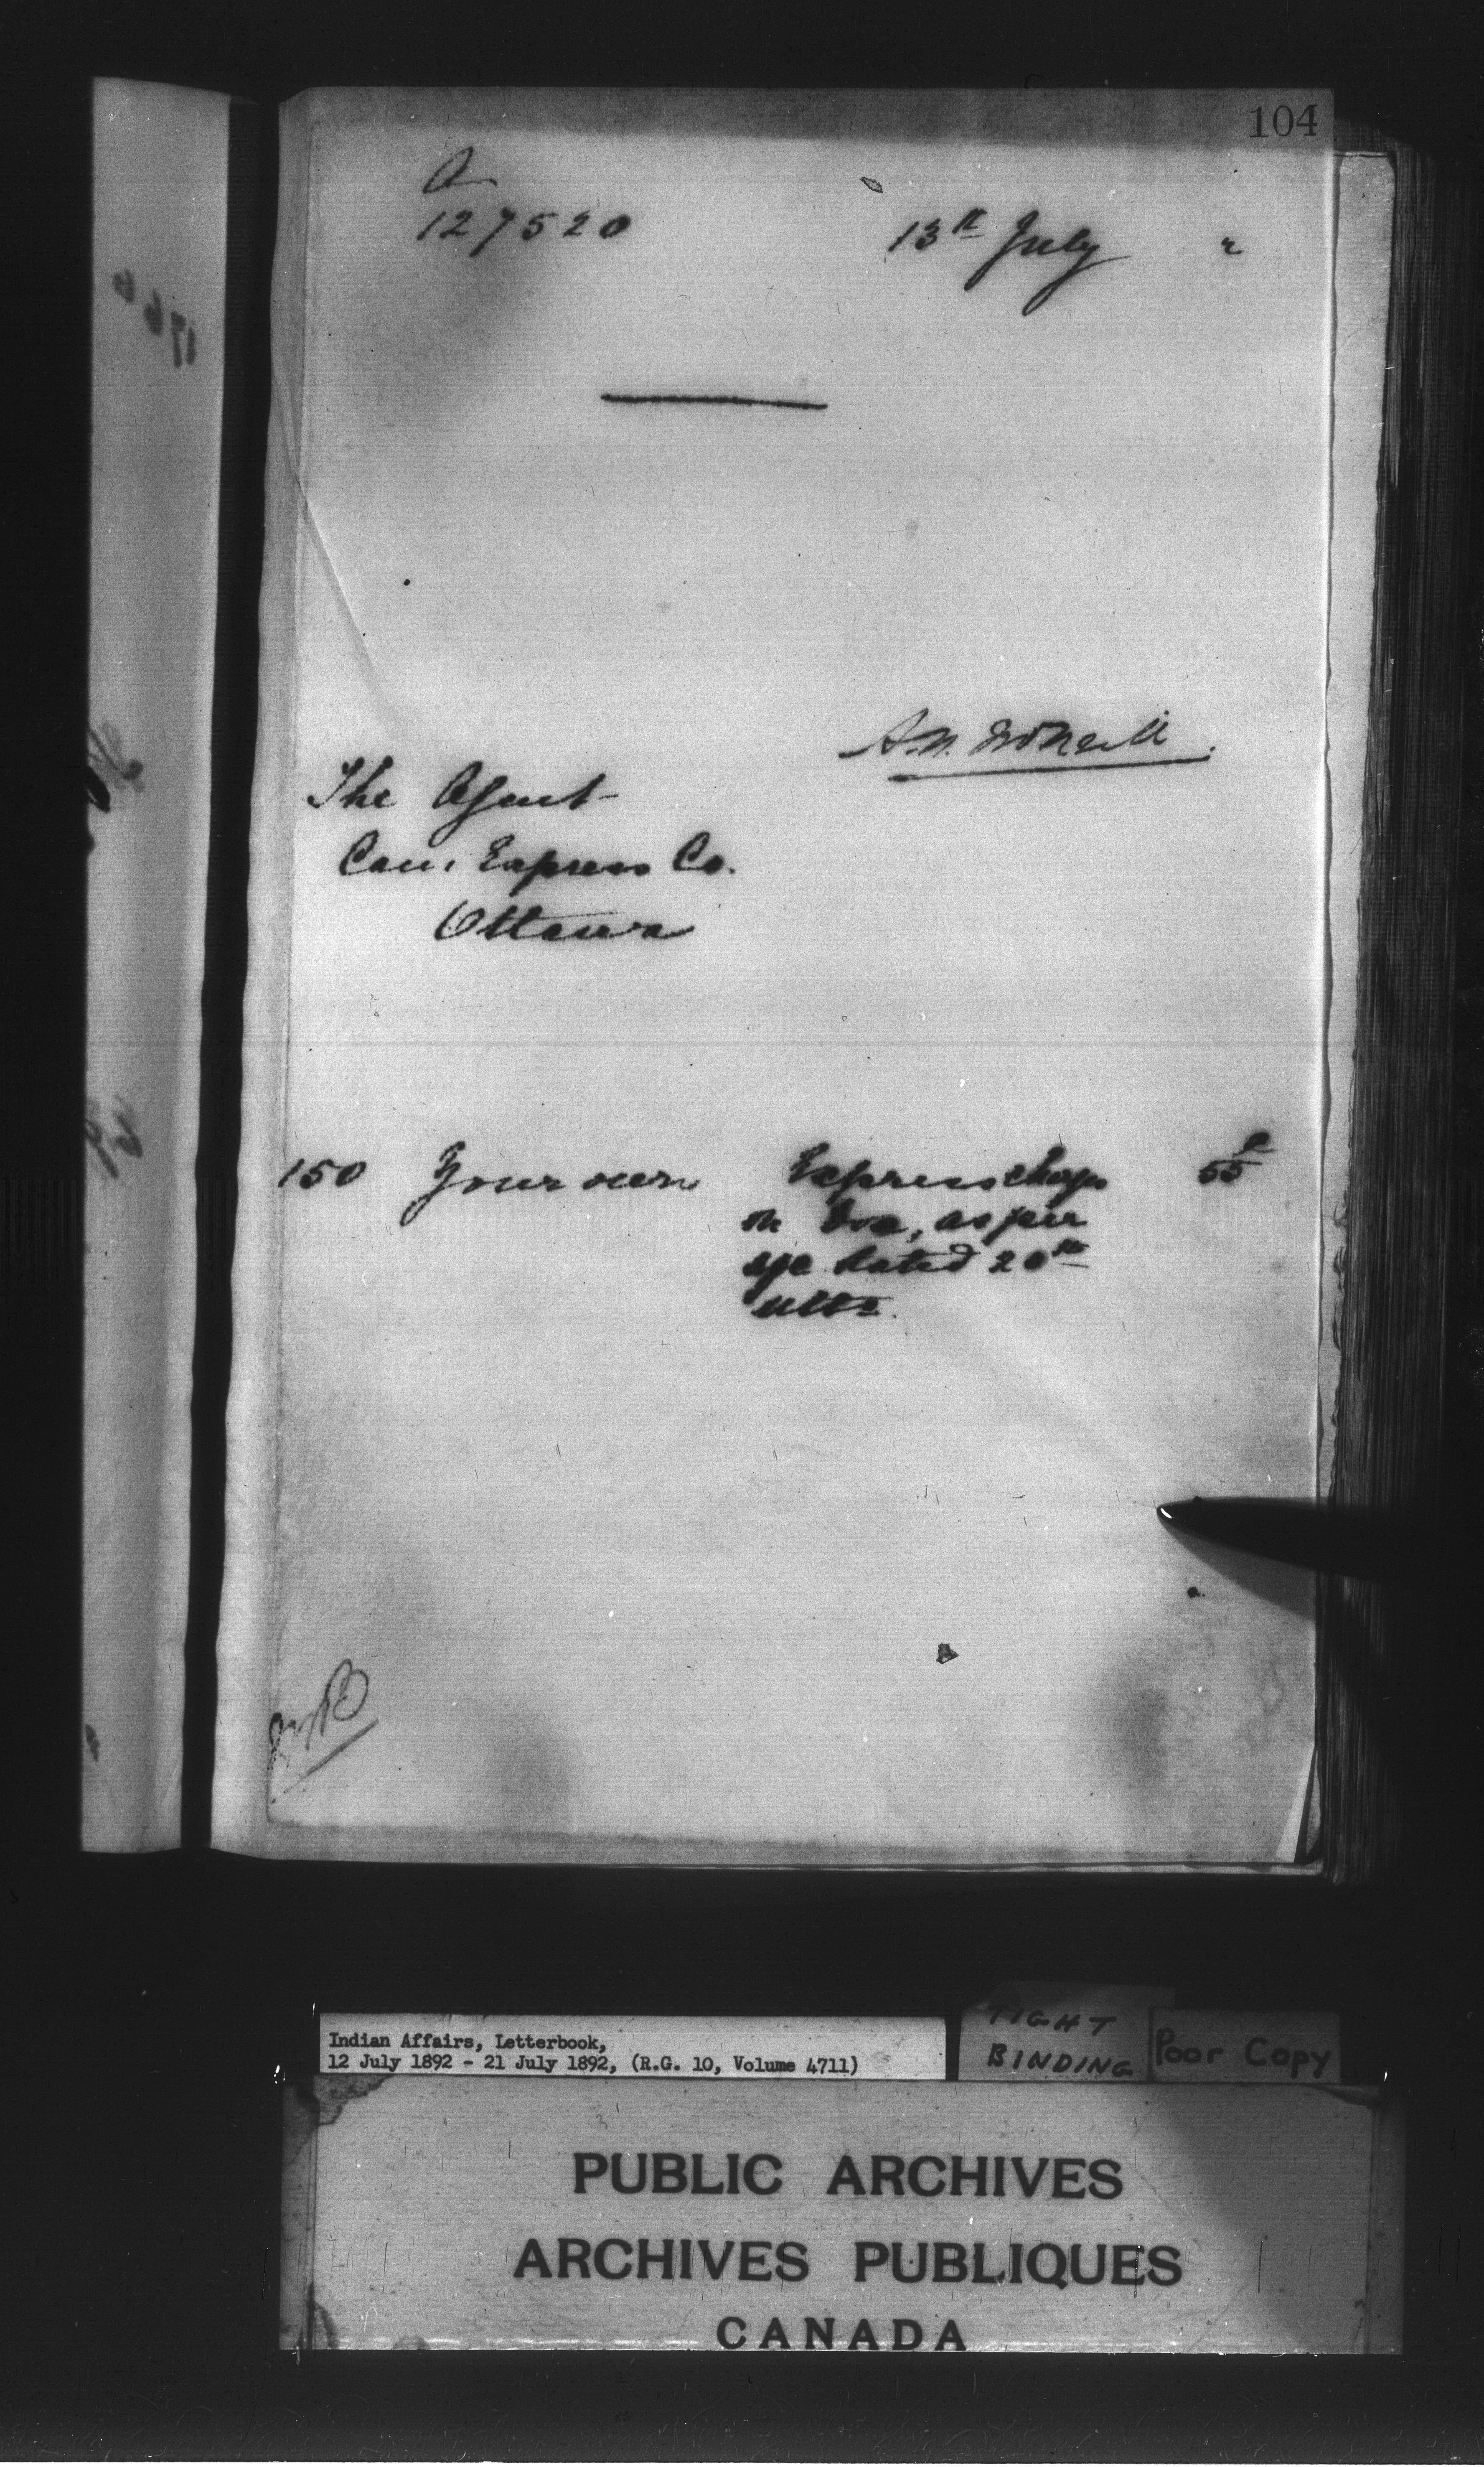 104
A
127520 13th July "
A.N. McNeill.
The Agent
Can. Express Co.
Ottawa
150 Your own Express chgs 55c
on box, as per
a/c dated 20th
ulto.
Indian Affairs, Letterbook,
12 July 1892 - 21 July 1892, (R.G. 10, Volume 4711)
TIGHT
BINDING
Poor Copy
PUBLIC ARCHIVES
ARCHIVES PUBLIQUES
CANADA